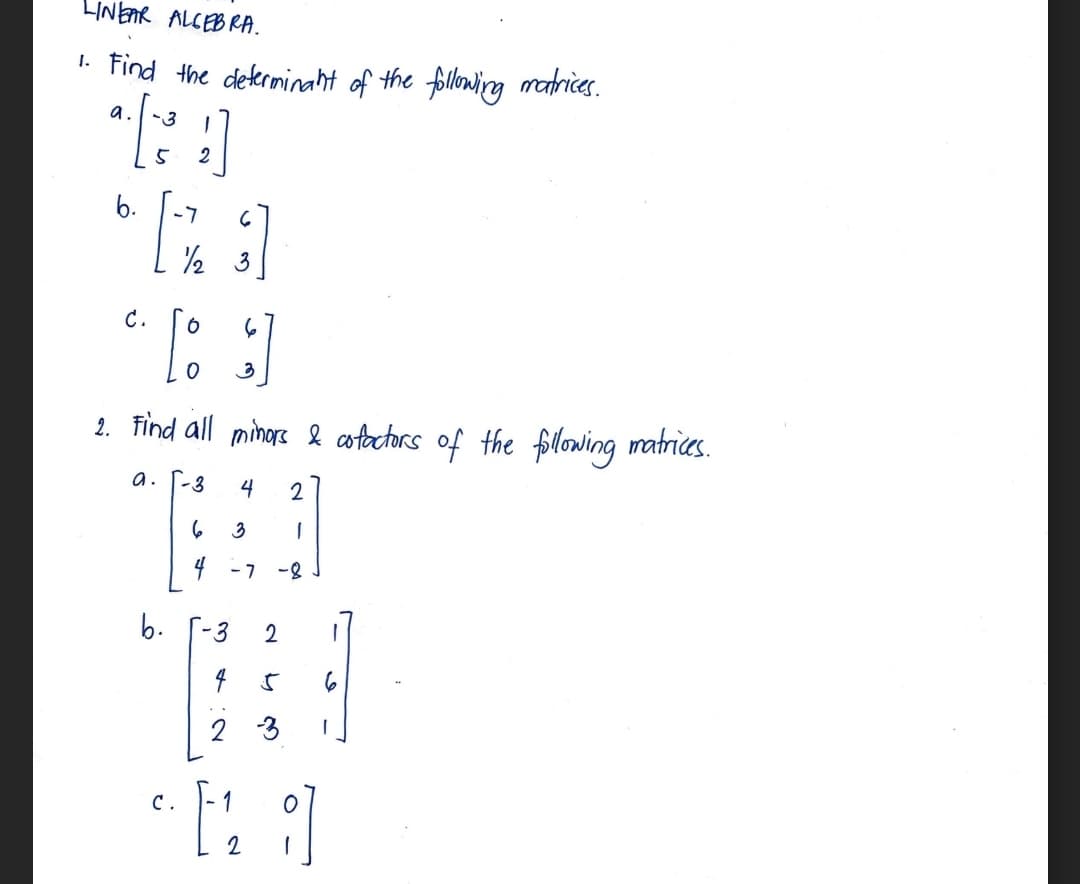 LINEAR ALGEBRA.
1. Find the determinant of the following matrices.
a. [-3 1
5 2]
b. [-7 6
1/2 3]
c. [0 6
0 3]
2. Find all minors & cofactors of the following matrices.
a. [-3 4 2
6 3 1
4 -7 -8]
b. [-3 2 1
4 5 6
2 -3 1]
c. [-1 0
2 1]